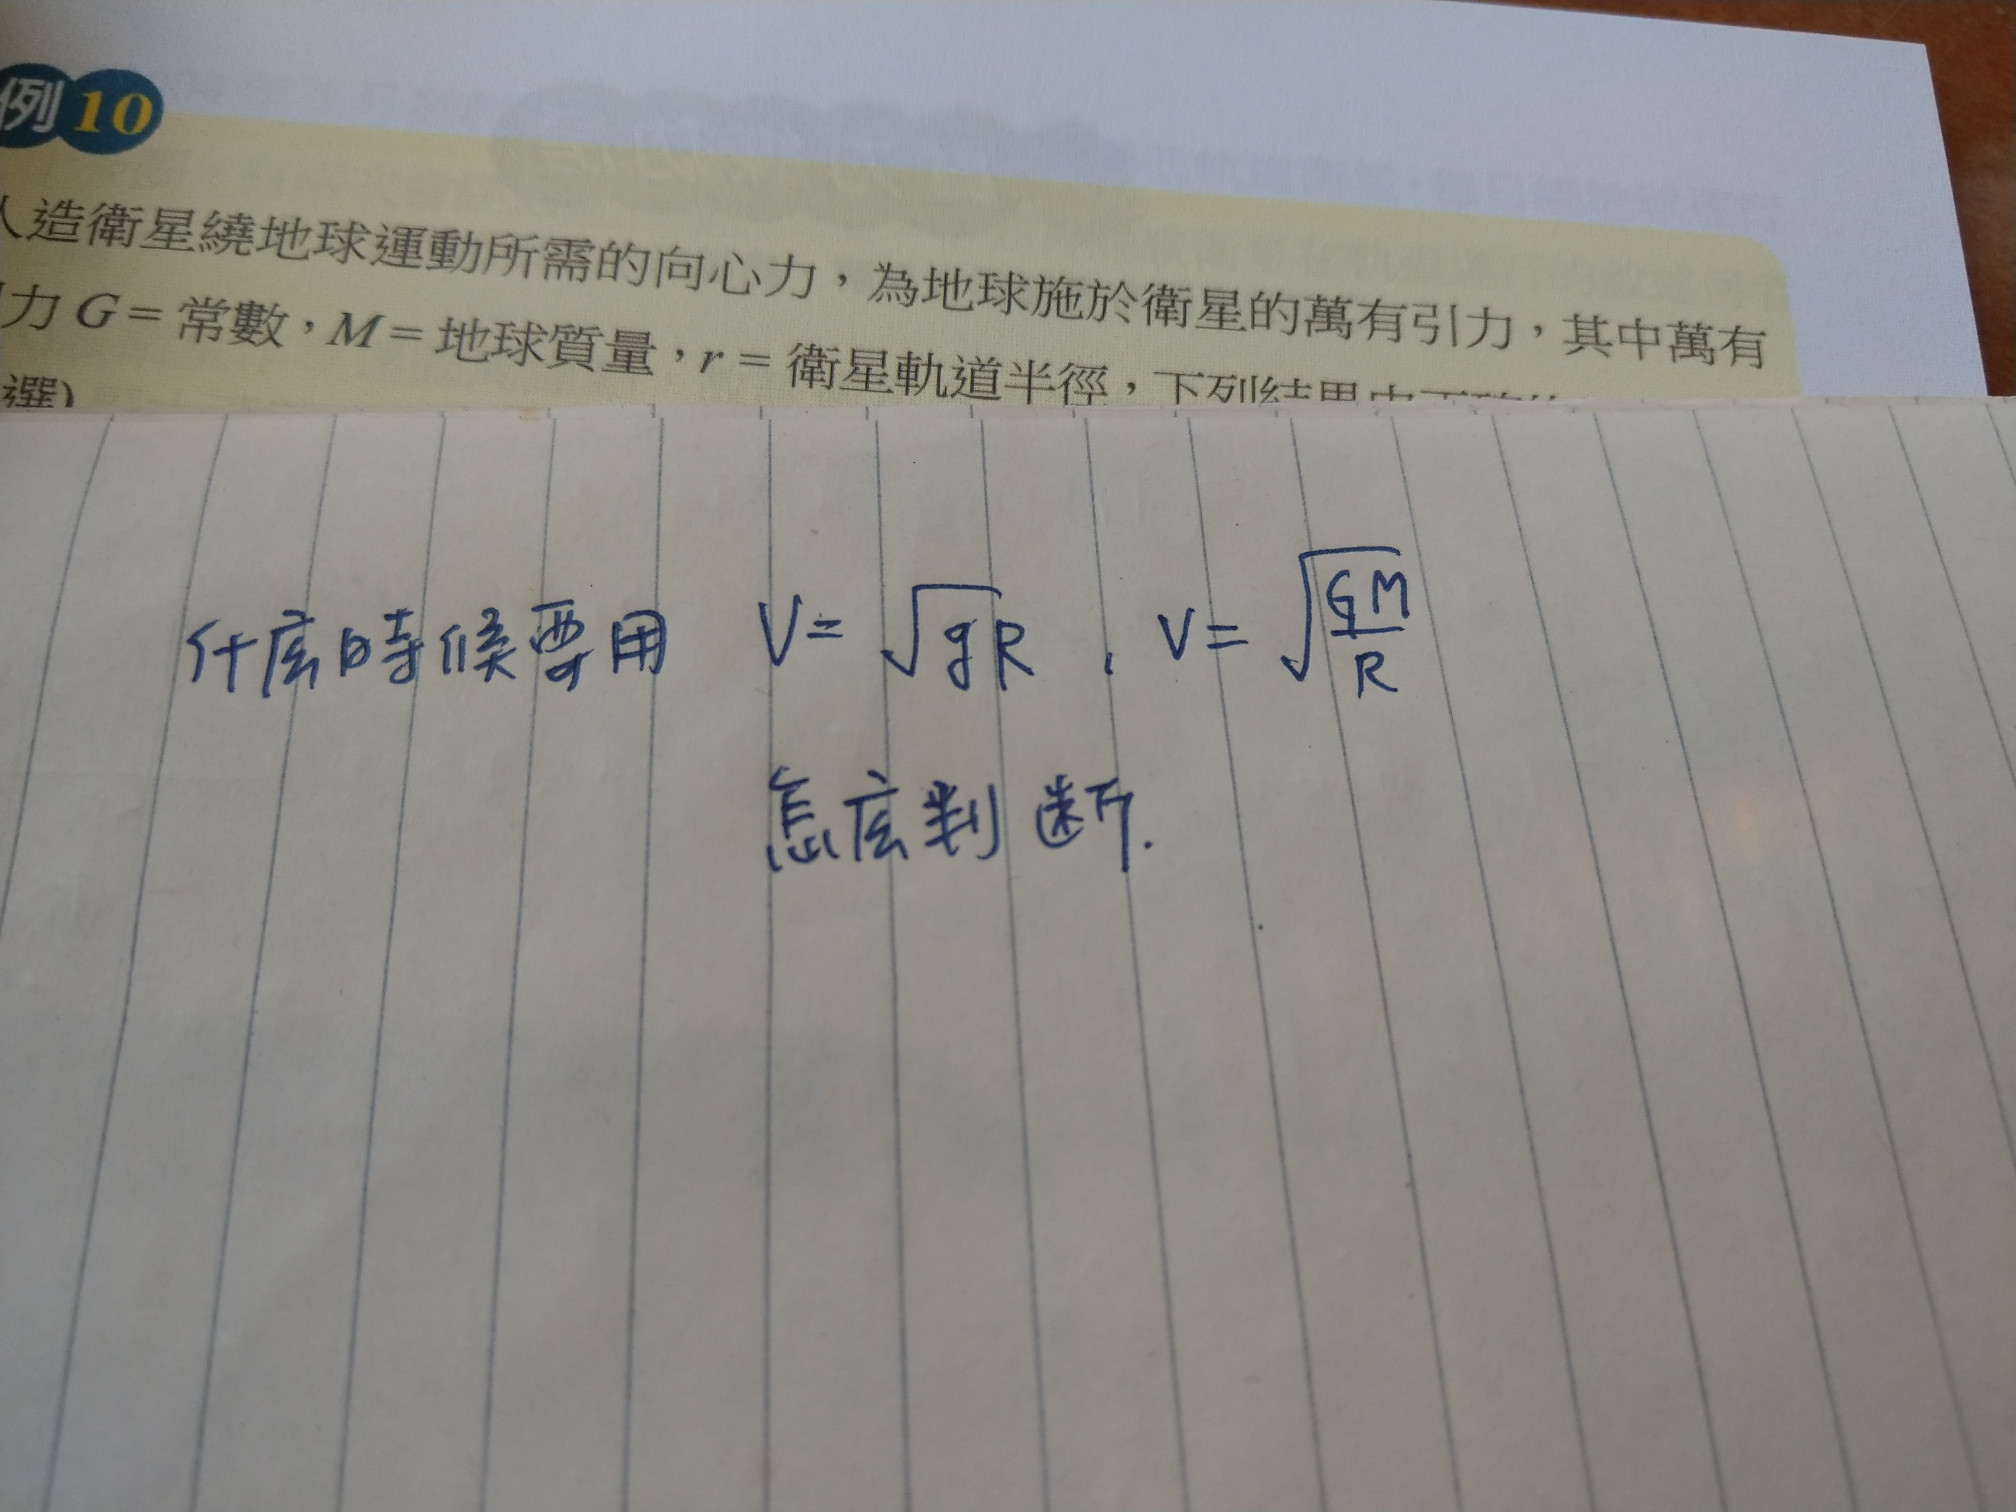 例10
人造衛星繞地球運動所需的向心力，為地球施於衛星的萬有引力，其中萬有
引力 G = 常數，M = 地球質量，r = 衛星軌道半徑，下列結果中正確
選)
什広時候要用 V= √gR , V= √GM/R
怎広判断.